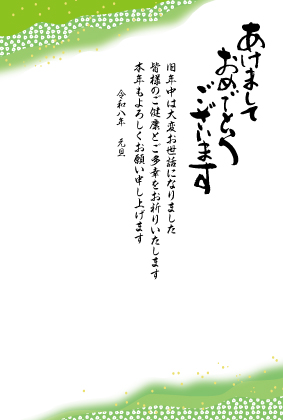 あけまして
おめでとう
ございます
旧年中は大変お世話になりました
皆様のご健康とご多幸をお祈りいたします
本年もよろしくお願い申し上げます
令和八年 元旦